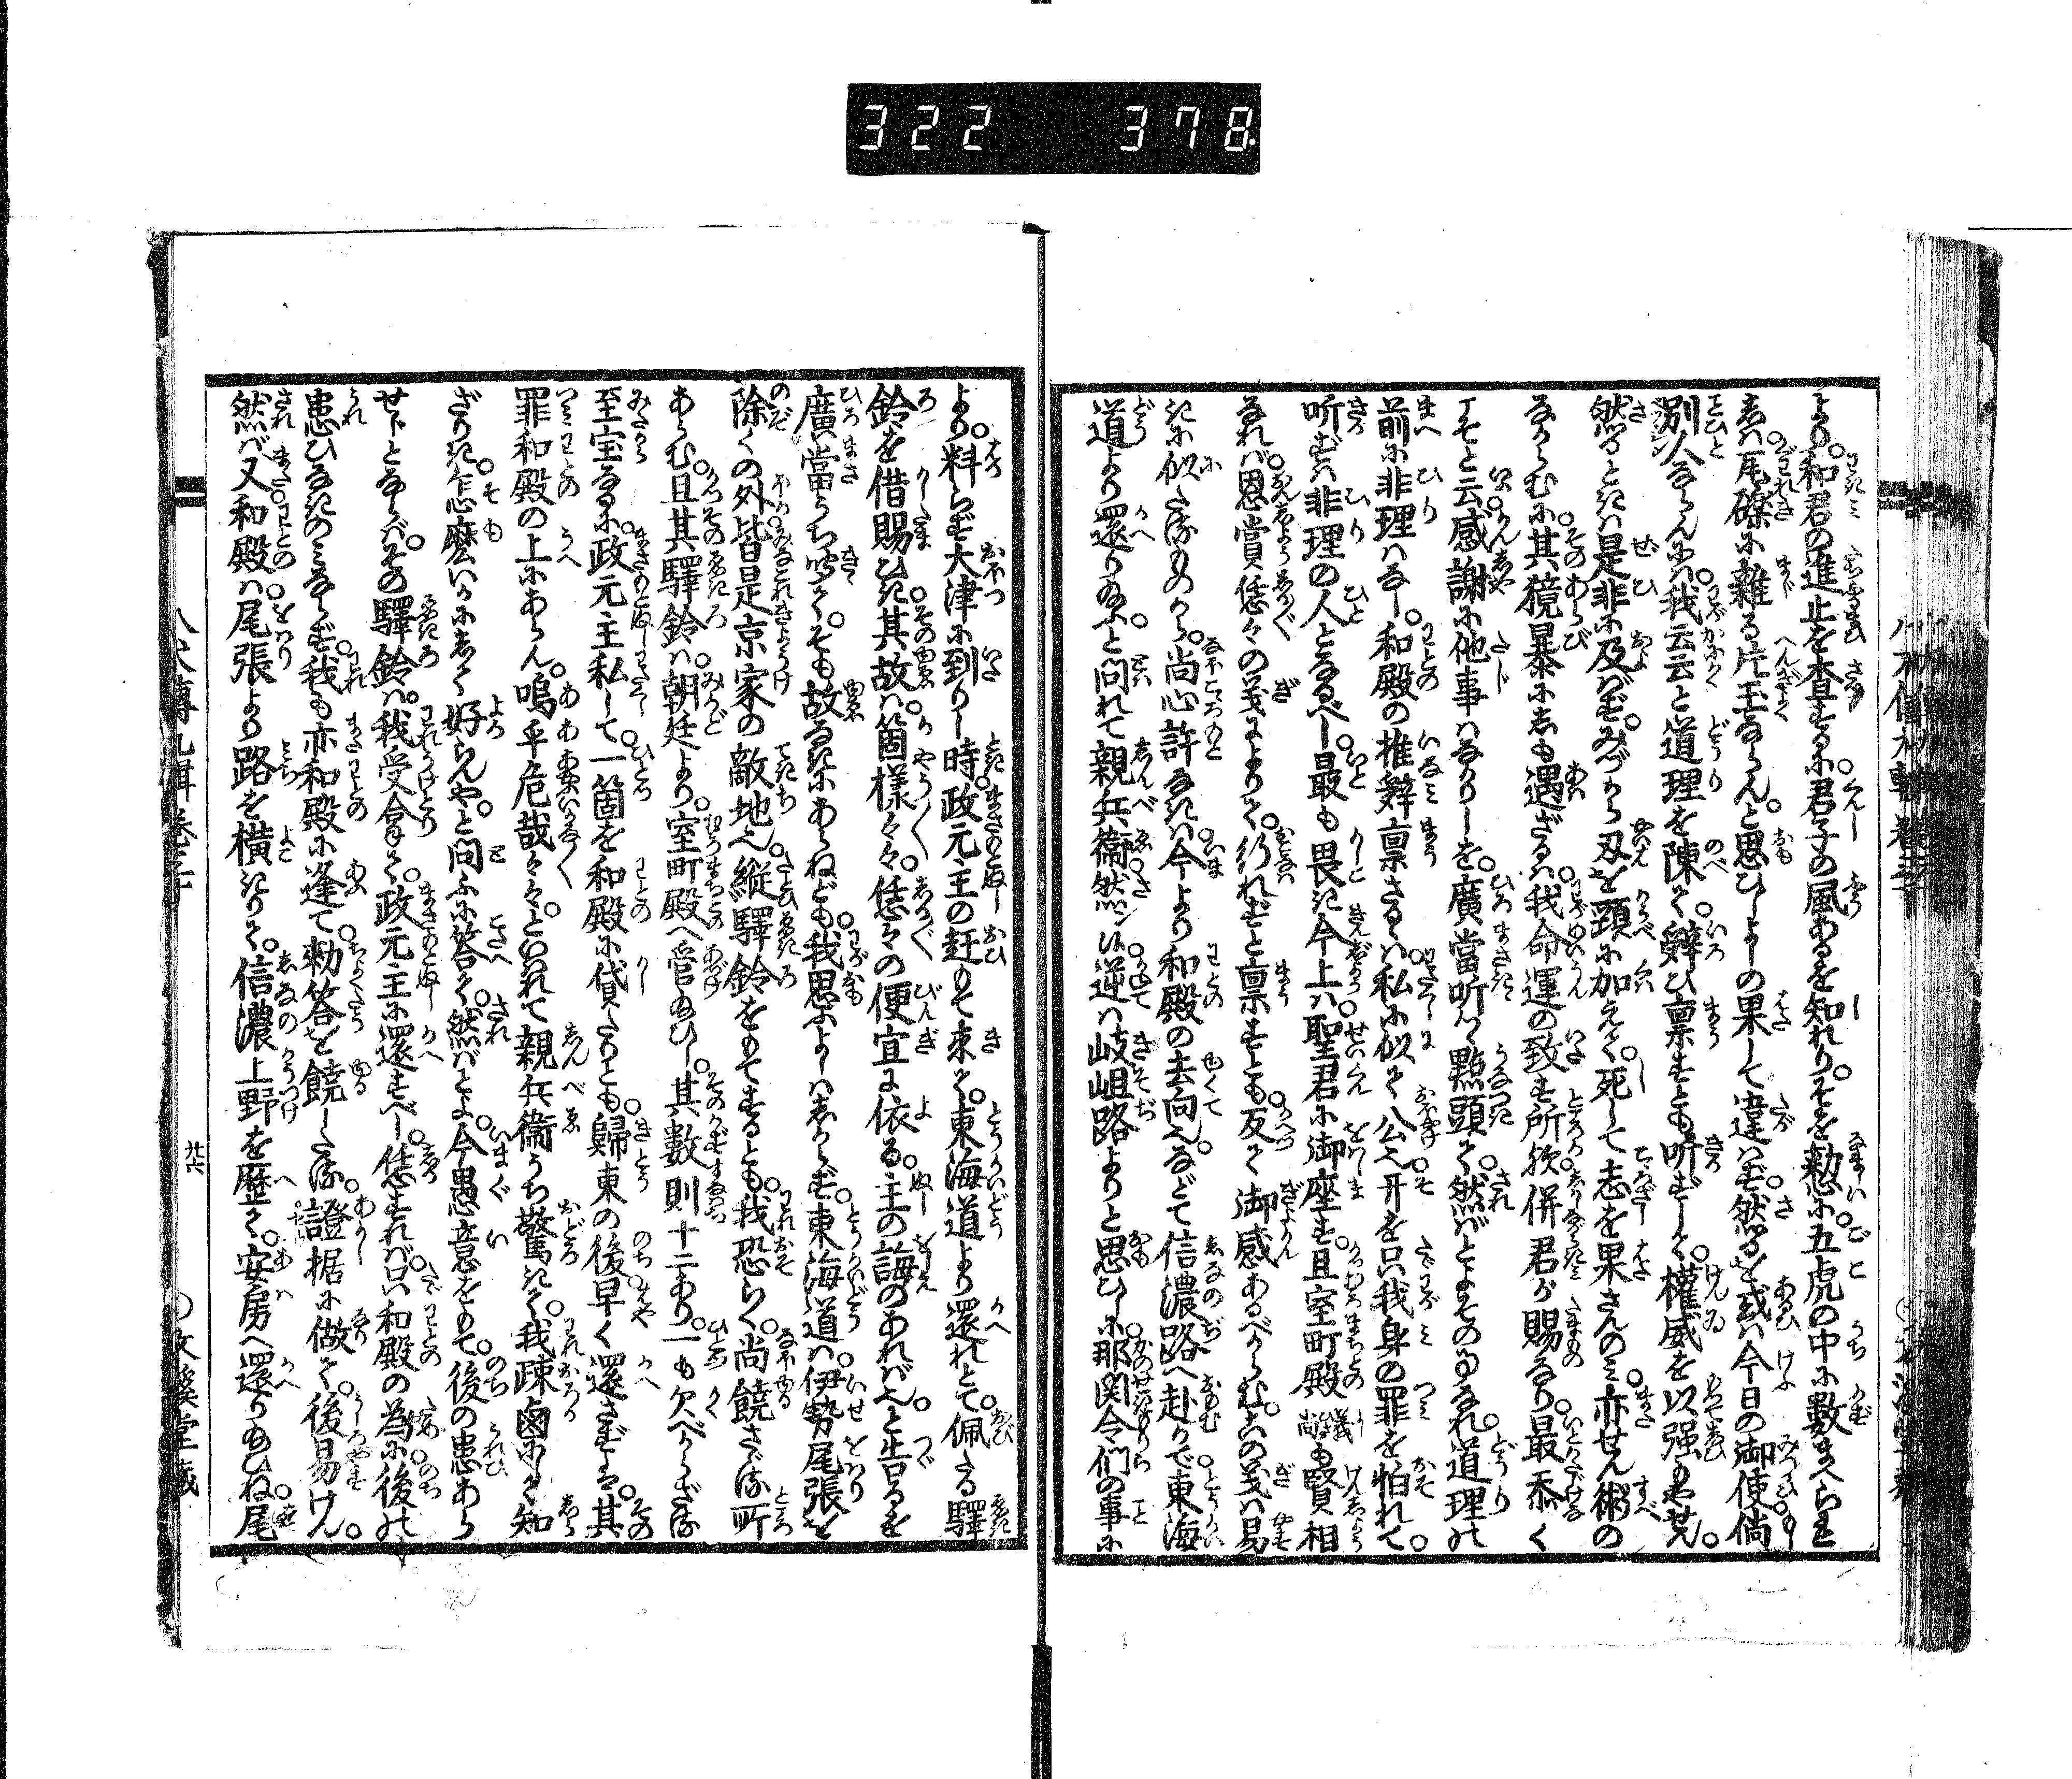 322 378
より。和君の進止を査するに。君子の風あるを知れり。そを勅に。五虎の中に数まへらるゝ
は。瓦礫に雑る片玉ならん。と思ひしよしの果して違はず。然るを或は今日の御使。倘
別人ならんには。我云云と道理を陳て。辞ひ稟すとも聴ずして。権威を以強もせん。
然るときは是非に及ばず。みづから刃を頸に加えて。死して志を果さんのみ。亦せん術の
なからむに。其獷暴にしも遇ざるは。我命運の致す所欤。併君が賜なり。最忝く
こそと云感謝に他事はなかりしを。廣當听つゝ點頭て。然ばとよその事なれ。道理の
前に非理はなし。和殿の推辞稟さるゝは。私に似て公也。开を只我身の罪を怕れて。
听ずは非理の人となるべし。最も畏き今上は。聖君に御座す。且室町殿義尚も賢相
なれば。恩賞恁々の義によりて。行れずと稟すとも。反て御感あるべからむ。この義は易
きに似たるものから。尚心許なきは。今より和殿の去向へ。などて信濃路へ赴かで。東海
道より還り給ふ。と問れて親兵衛。然ン候。逆は岐岨路よりと思ひしに。那関令們の事に
より。料らず大津に到りし時。政元主の赶もて来て。東海道より還れとて。佩たる驛
鈴を借賜ひき。其故は。箇様々々。恁々の便宜に依る。主の誨のあれば也。と告るを
廣當うち听て。そも故なきにあらねども。我思ふよしはしからず。東海道は。伊勢尾張を
除くの外。皆是京家の敵地也。縦驛鈴をもてするとも。我恐らくは。尚饒さゞる所
あらむ。且其驛鈴は。朝廷より。室町殿へ管給ひし。其数則十二あり。一も欠べからざる
至宝なるに。政元主私して。一箇を和殿に貸たりとも。歸東の後早く還さずは。其
罪和殿の上にあらん。嗚乎危哉々々。といはれて親兵衛うち驚きて。我疎鹵にして知
ざりき。怎麽いかにして好らんや。と問ふに答て。然ばとよ。今愚意をもて。後の患あら
せじとならば。その驛鈴は。我受拿て。政元主に還すべし。恁すれば只和殿の為に。後の
患ひなきのみならず。我も亦和殿に逢て。勅答を饒したる。證据に做て。後易けん。
然ば又和殿は。尾張より路を横ぎりて。信濃上野を歴て。安房へ還り給ひね。尾
八犬傳九輯巻三十
廿六
○文溪堂藏